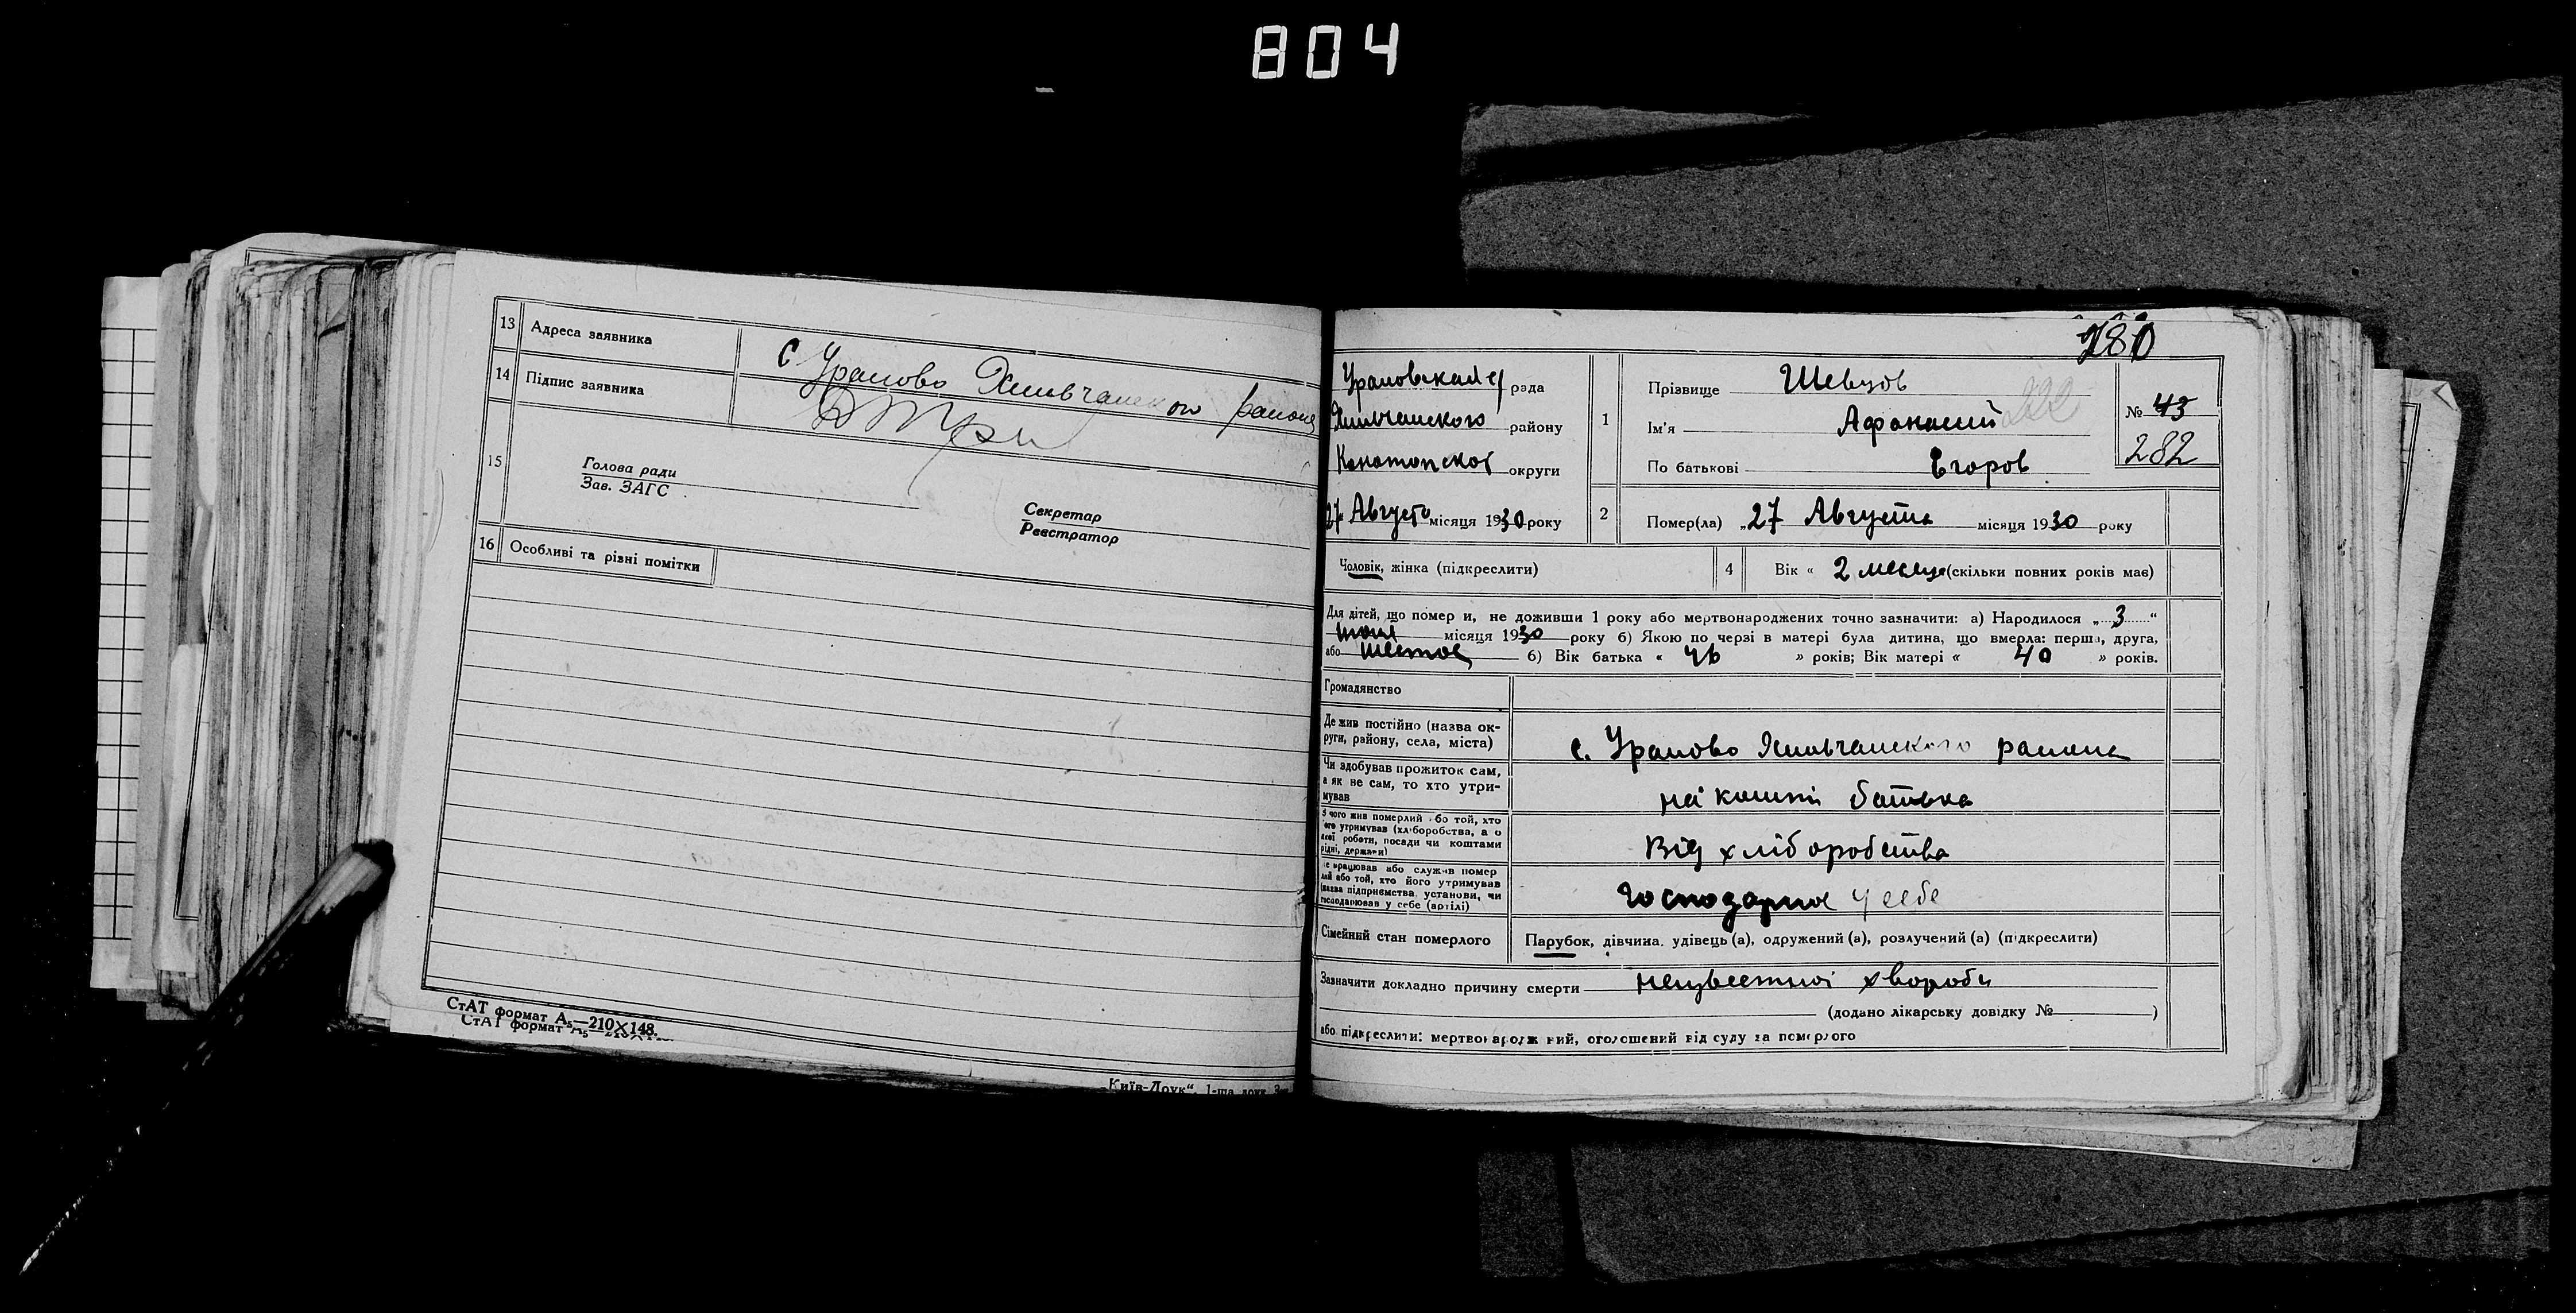 804
13 Адреса заявника
с Уралово Хильчанского района
14 Підпис заявника
15
Голова ради
Зав. ЗАГС
Секретар
Реєстратор
16 Особливі та різні помітки
СтАТ формат А₅—210×148.
СтАТ формат А₅
„Київ-Друк“, 1-ша друк. З
280
рада
Хильчанского району
Конотопскої округи
27 Августа місяця 1930 року
1
Прізвище Шевцов
Ім'я Афанасий
По батькові Егоров
№ 43
282
2 Помер(ла) „27 Августа місяця 1930 року
Чоловік, жінка (підкреслити)
4 Вік « 2 месяца (скільки повних років має)
Для дітей, що помер и, не доживши 1 року або мертвонароджених точно зазначити: а) Народилося „ 3 “
місяця 1930 року б) Якою по черзі в матері була дитина, що вмерла: перша, друга,
або шестое б) Вік батька « 46 » років; Вік матері « 40 » років.
Громадянство
Де жив постійно (назва округи, району, села, міста)
с. Уралово Хильчанского района
Чи здобував прожиток сам,
а як не сам, то хто утримував
на кошти батька
З чого жив померлий або той, хто
його утримував (хліборобства, а о
якої роботи, посади чи коштами
рідні, держави)
Від хліборобства
Де працював або служив помер
лий або той, хто його утримував
(назва підприємства, установи, чи
господарював у себе (артілі)
господарит у себе
Сімейний стан померлого
Парубок, дівчина, удівець (а), одружений (а), розлучений (а) (підкреслити)
Зазначити докладно причину смерти неизвестної хвороби
(додано лікарську довідку № )
або підкреслити: мертвонароджений, оголошений від суду за померлого